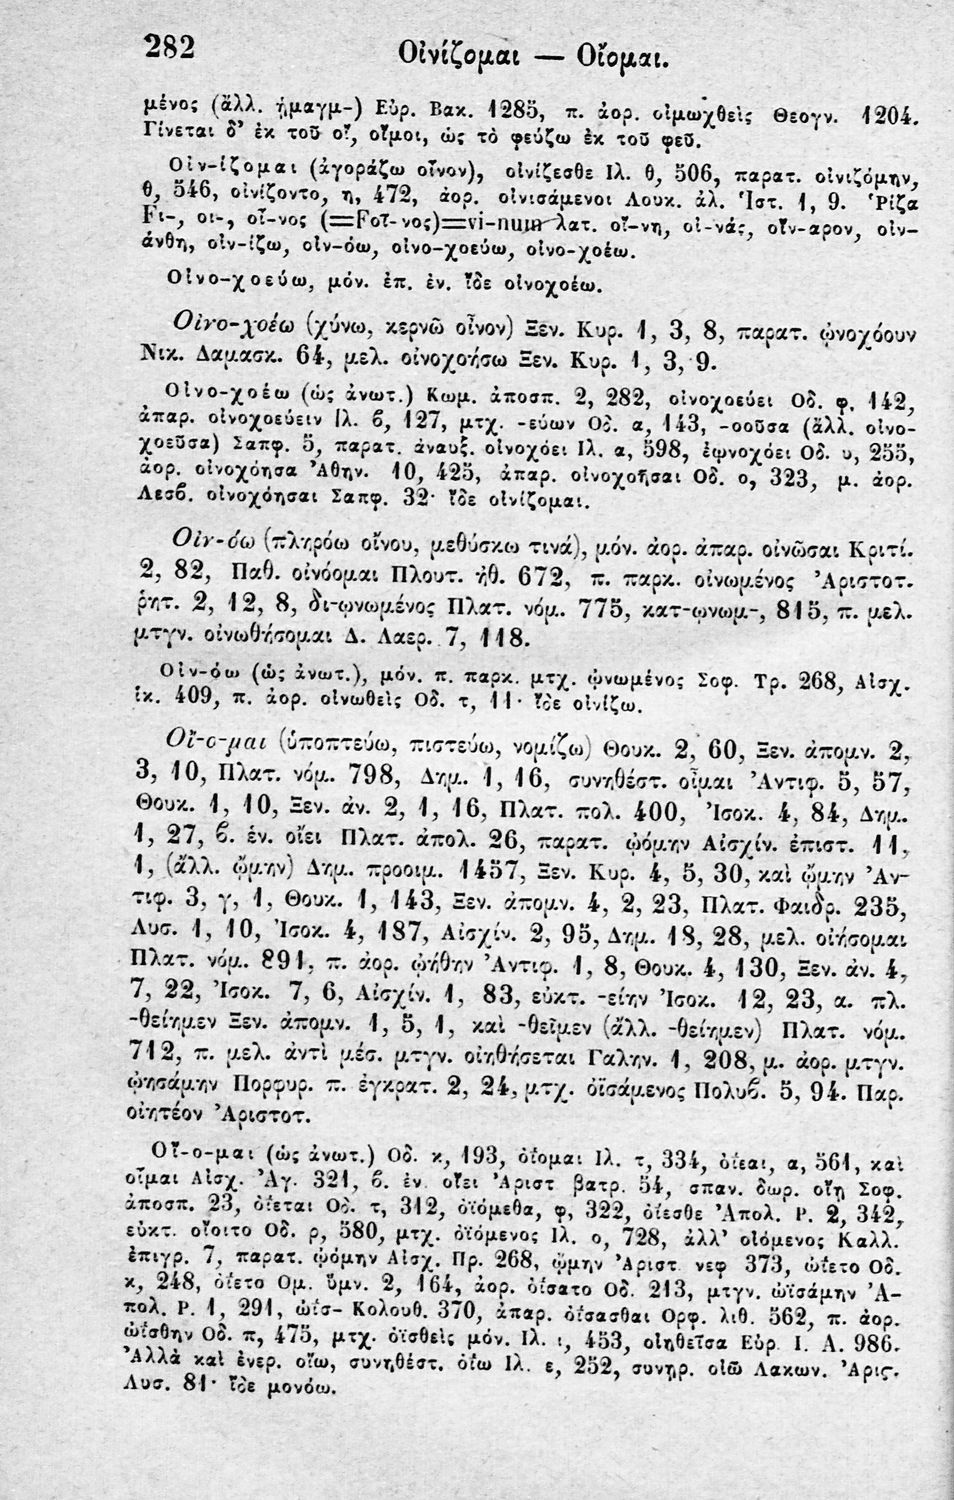 282
Οἰνίζομαι — Οἴομαι.
μένος (ἄλλ. ᾑμαγμ-) Εὐρ. Βακ. 1285, π. ἀορ. οἰμωχθεὶς Θεογν. 1204.
Γίνεται δ' ἐκ τοῦ οἴ, οἴμοι, ὡς τὸ φεύζω ἐκ τοῦ φεῦ.
Οἰν-ίζομαι (ἀγοράζω οἶνον), οἰνίζεσθε Ιλ. θ, 506, παρατ. οἰνιζόμην,
θ, 546, οἰνίζοντο, η, 472, ἀορ. οἰνισάμενοι Λουκ. ἀλ. Ἱστ. 1, 9. Ῥίζα
Fι-, οι-, οἶ-νος (=Fοῖ-νος)=vi-num λατ. οἴ-νη, οἰ-νάς, οἴν-αρον, οἰν-
άνθη, οἰν-ίζω, οἰν-όω, οἰνο-χοεύω, οἰνο-χοέω.
Οἰνο-χοεύω, μόν. ἐπ. ἐν. ἴδε οἰνοχοέω.
Οἰνο-χοέω (χύνω, κερνῶ οἶνον) Ξεν. Κυρ. 1, 3, 8, παρατ. ᾠνοχόουν
Νικ. Δαμασκ. 64, μελ. οἰνοχοήσω Ξεν. Κυρ. 1, 3, 9.
Οἰνο-χοέω (ὡς ἀνωτ.) Κωμ. ἀποσπ. 2, 282, οἰνοχοεύει Οδ. φ, 142,
ἀπαρ. οἰνοχοεύειν Ιλ. ϐ, 127, μτχ. -εύων Οδ. α, 143, -οοῦσα (ἄλλ. οἰνο-
χοεῦσα) Σαπφ. 5, παρατ. ἀναυξ. οἰνοχόει Ιλ. α, 598, ἐῳνοχόει Οδ. υ, 255,
ἀορ. οἰνοχόησα Ἀθην. 10, 425, ἀπαρ. οἰνοχοῆσαι Οδ. ο, 323, μ. ἀορ.
Λεσϐ. οἰνοχόησαι Σαπφ. 32· ἴδε οἰνίζομαι.
Οἰν-όω (πληρόω οἴνου, μεθύσκω τινά), μόν. ἀορ. ἀπαρ. οἰνῶσαι Κριτί.
2, 82, Παθ. οἰνόομαι Πλουτ. ἠθ. 672, π. παρκ. οἰνωμένος Ἀριστοτ.
ῥητ. 2, 12, 8, δι-ῳνωμένος Πλατ. νόμ. 775, κατ-ῳνωμ-, 815, π. μελ.
μτγν. οἰνωθήσομαι Δ. Λαερ. 7, 118.
Οἰν-όω (ὡς ἀνωτ.), μόν. π. παρκ. μτχ. ᾠνωμένος Σοφ. Τρ. 268, Αἰσχ.
ἱκ. 409, π. ἀορ. οἰνωθεὶς Οδ. τ, 11· ἴδε οἰνίζω.
Οἴ-ο-μαι (ὑποπτεύω, πιστεύω, νομίζω) Θουκ. 2, 60, Ξεν. ἀπομν. 2,
3, 10, Πλατ. νόμ. 798, Δημ. 1, 16, συνηθέστ. οἶμαι Ἀντιφ. 5, 57,
Θουκ. 1, 10, Ξεν. ἀν. 2, 1, 16, Πλατ. πολ. 400, Ἰσοκ. 4, 84, Δημ.
1, 27, ϐ. ἑν. οἴει Πλατ. ἀπολ. 26, παρατ. ᾠόμην Αἰσχίν. ἐπιστ. 11,
1, (ἄλλ. ᾤμην) Δημ. προοιμ. 1457, Ξεν. Κυρ. 4, 5, 30, καὶ ᾤμην Ἀν-
τιφ. 3, γ, 1, Θουκ. 1, 143, Ξεν. ἀπομν. 4, 2, 23, Πλατ. Φαιδρ. 235,
Λυσ. 1, 10, Ἰσοκ. 4, 187, Αἰσχίν. 2, 95, Δημ. 18, 28, μελ. οἰήσομαι
Πλατ. νόμ. 891, π. ἀορ. ᾠήθην Ἀντιφ. 1, 8, Θουκ. 4, 130, Ξεν. ἀν. 4,
7, 22, Ἰσοκ. 7, 6, Αἰσχίν. 1, 83, εὐκτ. -είην Ἰσοκ. 12, 23, α. πλ.
-θείημεν Ξεν. ἀπομν. 1, 5, 1, καὶ -θεῖμεν (ἄλλ. -θείημεν) Πλατ. νόμ.
712, π. μελ. ἀντὶ μέσ. μτγν. οἰηθήσεται Γαλην. 1, 208, μ. ἀορ. μτγν.
ᾠησάμην Πορφυρ. π. ἐγκρατ. 2, 24, μτχ. ὀϊσάμενος Πολυϐ. 5, 94. Παρ.
οἰητέον Ἀριστοτ.
Οἴ-ο-μαι (ὡς ἀνωτ.) Οδ. κ, 193, ὀΐομαι Ιλ. τ, 334, ὀΐεαι, α, 561, καὶ
οἶμαι Αἰσχ. Ἀγ. 321, ϐ. ἑν. οἴει Ἀριστ βατρ. 54, σπαν. δωρ. οἴῃ Σοφ.
ἀποσπ. 23, ὀΐεται Οδ. τ, 312, ὀϊόμεθα, φ, 322, ὀίεσθε Ἀπολ. Ρ. 2, 342,
εὐκτ. οἴοιτο Οδ. ρ, 580, μτχ. ὀϊόμενος Ιλ. ο, 728, ἀλλ' οἰόμενος Καλλ.
ἐπιγρ. 7, παρατ. ᾠόμην Αἰσχ. Πρ. 268, ᾤμην Ἀριστ. νεφ 373, ὠΐετο Οδ.
κ, 248, ὀΐετο Ομ. ὕμν. 2, 164, ἀορ. ὀίσατο Οδ. 213, μτγν. ὠϊσάμην Ἀ-
πολ. Ρ. 1, 291, ὠίσ- Κολουθ. 370, ἀπαρ. ὀΐσασθαι Ορφ. λιθ. 562, π. ἀορ.
ὠΐσθην Οδ. π, 475, μτχ. ὀϊσθεὶς μόν. Ιλ. ι, 453, οἰηθεῖσα Εὐρ. Ι. Α. 986.
Ἀλλὰ καὶ ἐνερ. οἴω, συνηθέστ. ὀΐω Ιλ. ε, 252, συνῃρ. οἰῶ Λακων. Ἀρις.
Λυσ. 81· ἴδε μονόω.